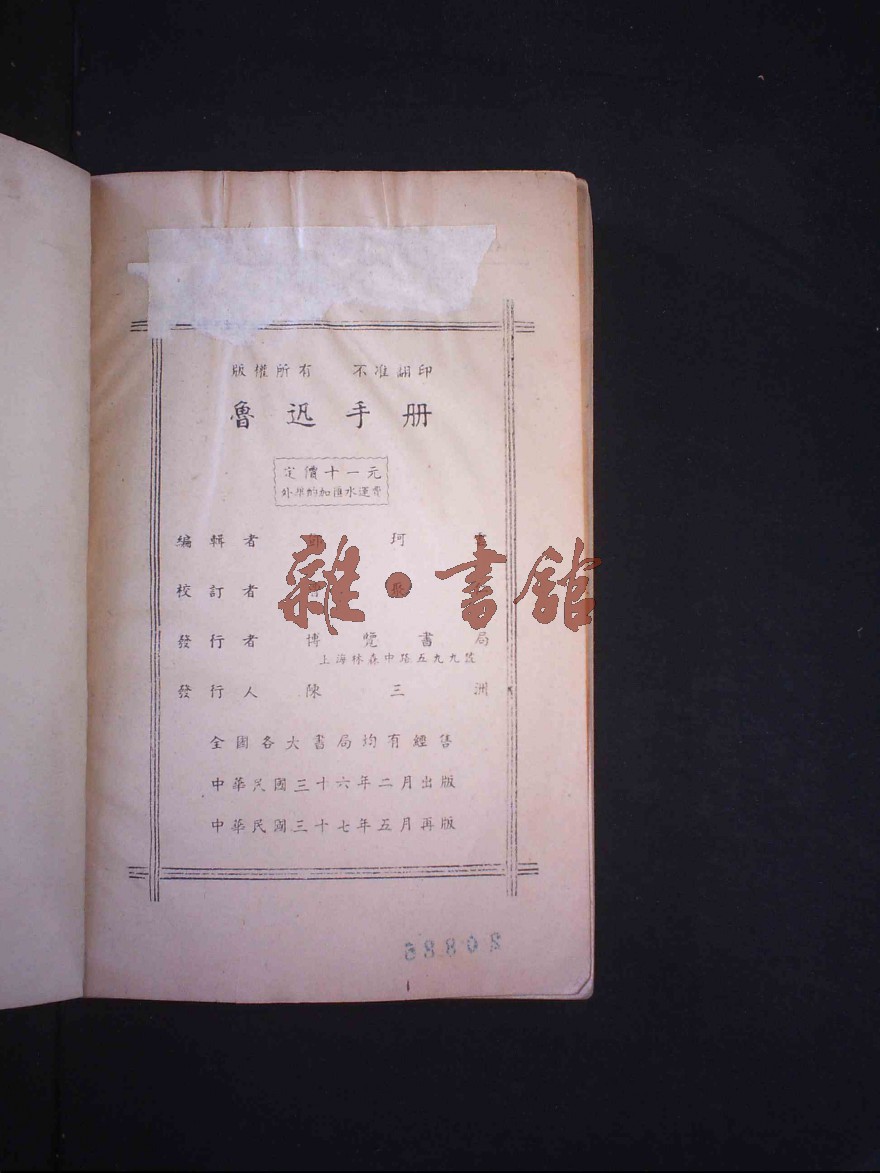 版權所有 不准翻印
魯迅手册
定價十一元
外埠酌加匯水運費
編輯者 珂
校訂者
雜·書館
發行者 博覽書局
上海林森中路五九九號
發行人 陳三洲
全國各大書局均有經售
中華民國三十六年二月出版
中華民國三十七年五月再版
20886